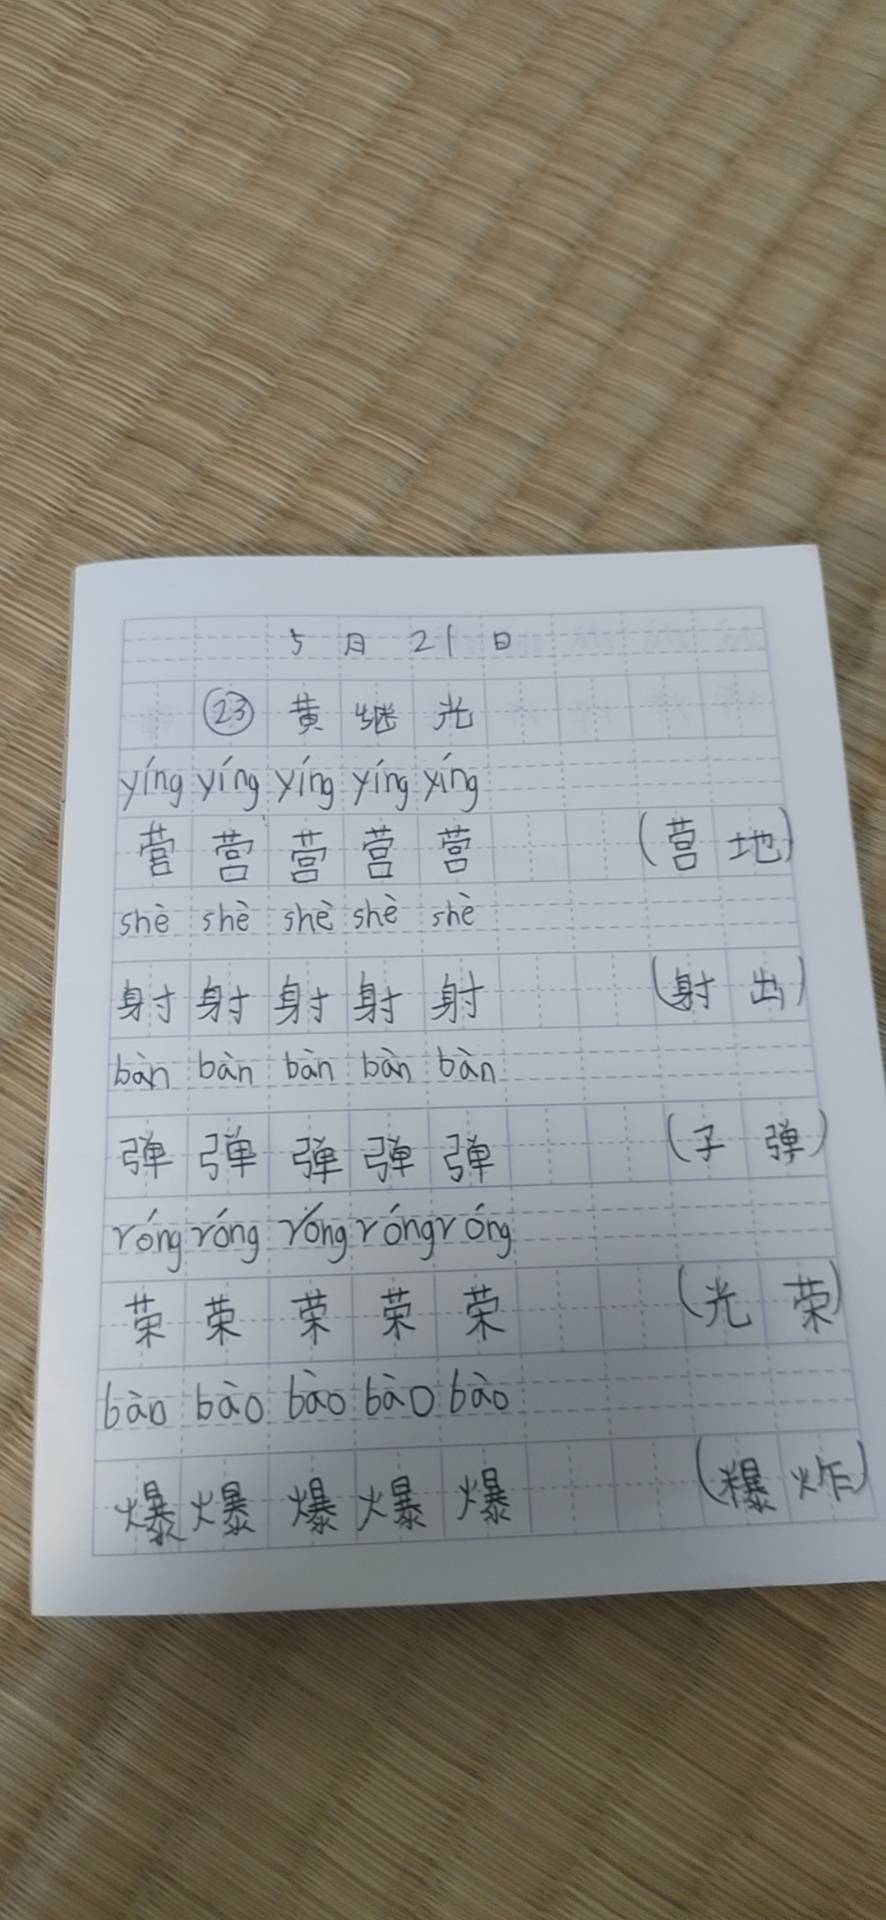 5月21日
㉓黄继光
yíng yíng yíng yíng yíng
营营营营营(营地)
shè shè shè shè shè
射射射射射(射出)
bàn bàn bàn bàn bàn
弹弹弹弹弹(子弹)
róng róng róng róng róng
荣荣荣荣荣(光荣)
bào bào bào bào bào
爆爆爆爆爆(爆炸)